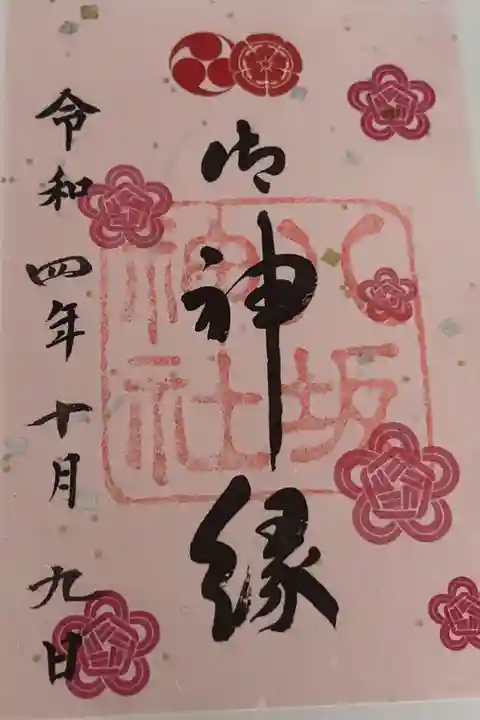 御神縁
八坂神社
令和四年十月九日